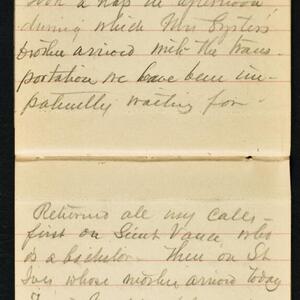 Took a nap in afternoon,
during which Mrs Oyster's
brother arrived with the trans-
portation we have been im-
patiently waiting for -
Returned all my calls -
first on Lieut Vance, who
is a bachelor. Then on St
Ives whose mother arrived today